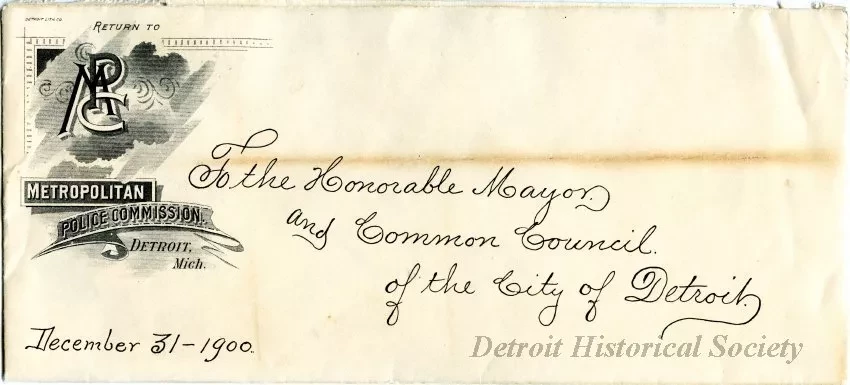 DETROIT LITH. CO.
RETURN TO
MPC
METROPOLITAN
POLICE COMMISSION.
DETROIT,
Mich.
To the Honorable Mayor
and Common Council.
of the City of Detroit.
December 31-1900.
Detroit Historical Society